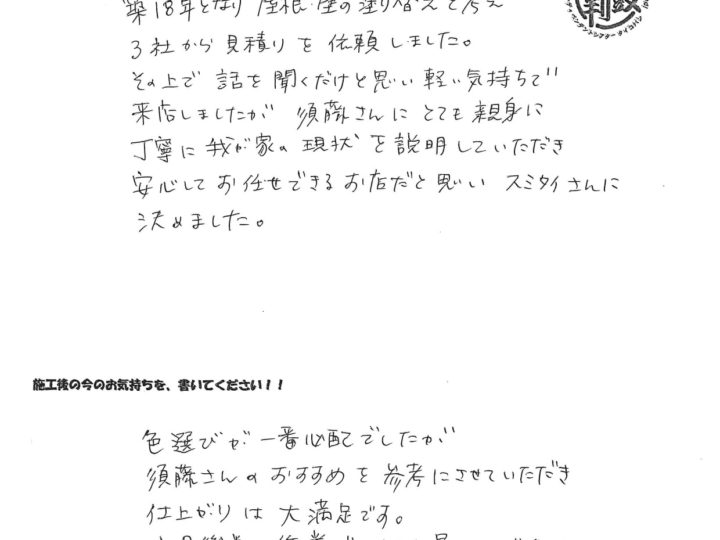 築18年となり 屋根・壁の塗り替えを考え
3社から見積りを依頼しました。
その上で 話を聞くだけと思い軽い気持ちで
来店しましたが 須藤さんに とても親身に
丁寧に我が家の現状を説明していただき
安心してお任せできるお店だと思い スミタイさんに
決めました。
施工後の今のお気持ちを、書いてください!!
色選びが一番心配でしたが
須藤さんのおすすめを参考にさせていただき
仕上がりは大満足です。